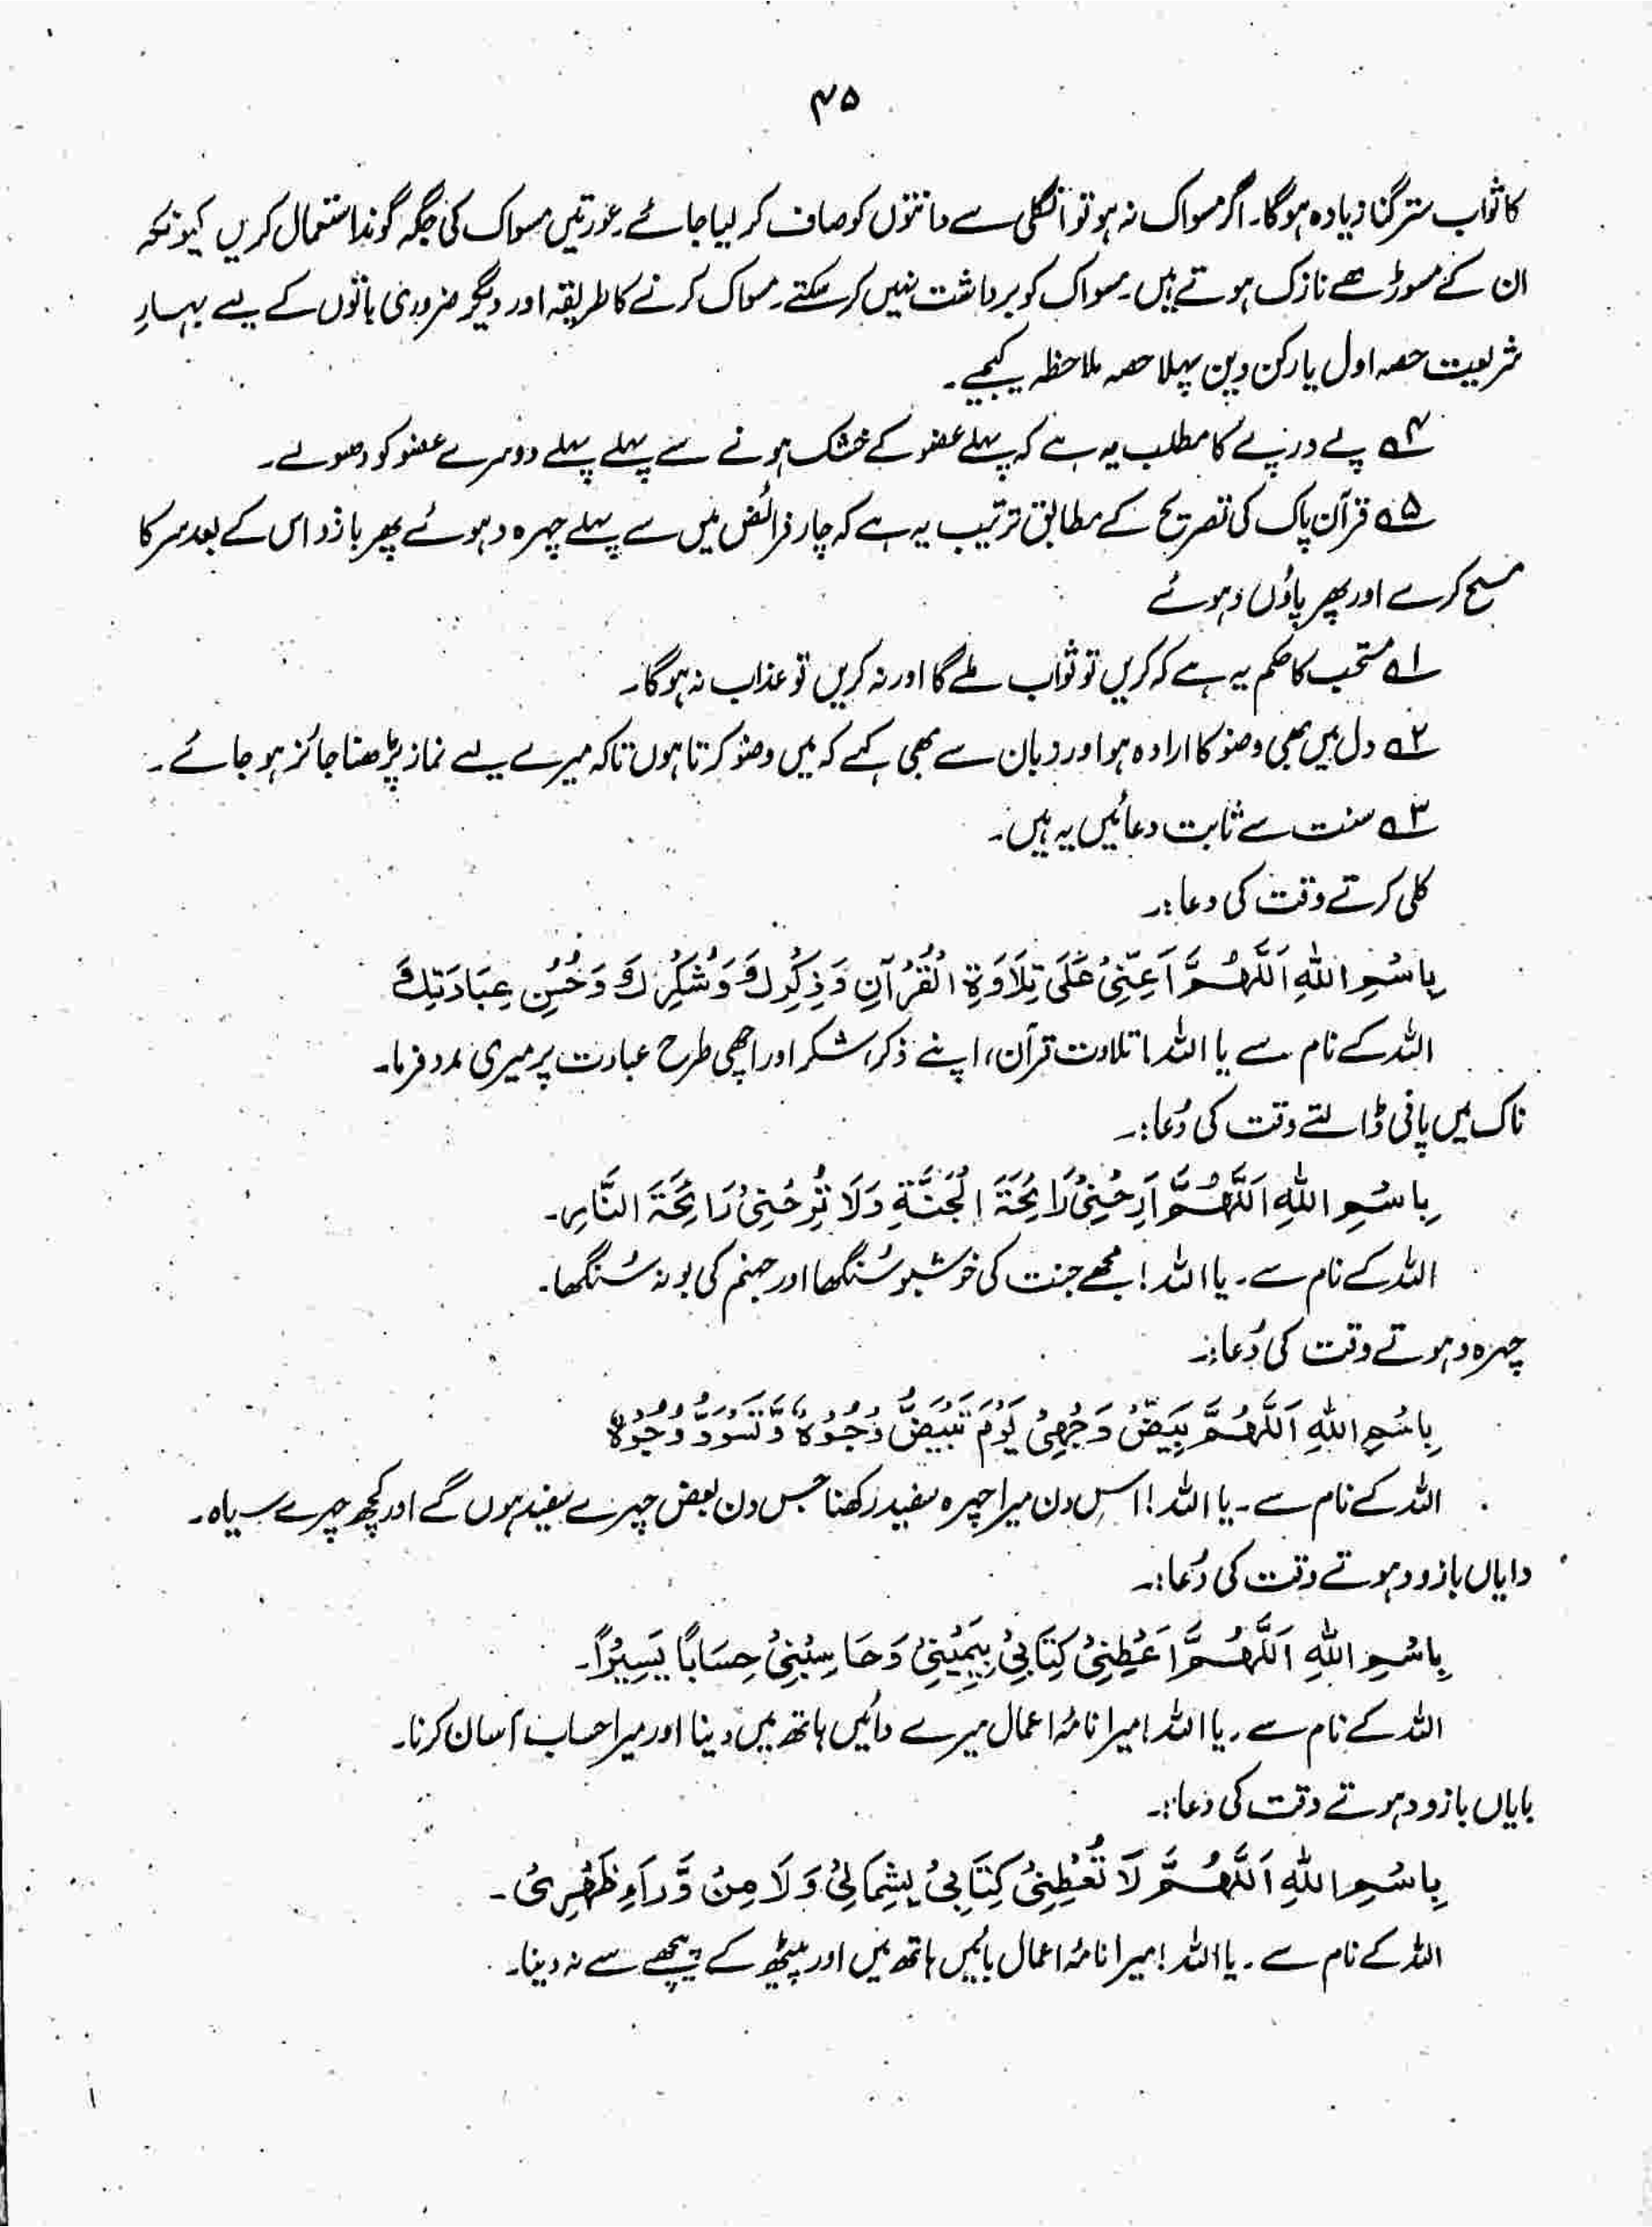 ۴۵
کا ثواب ستر گنا زیادہ ہوگا۔ اگر مسواک نہ ہو تو انگلی سے دانتوں کو صاف کر لیا جائے۔ عورتیں مسواک کی جگہ گوند استعمال کریں کیونکہ
ان کے مسوڑھے نازک ہوتے ہیں۔ مسواک کو برداشت نہیں کر سکتے۔ مسواک کرنے کا طریقہ اور دیگر ضروری باتوں کے لیے بہارِ
شریعت حصہ اول یا رکن دین پہلا حصہ ملاحظہ کیجیے۔
۴ پے در پے کا مطلب یہ ہے کہ پہلے عضو کے خشک ہونے سے پہلے پہلے دوسرے عضو کو دھولے۔
۵ قرآن پاک کی تصریح کے مطابق ترتیب یہ ہے کہ چار فرائض میں سے پہلے چہرہ دہوئے پھر بازو اس کے بعد سر کا
مسح کرے اور پھر پاؤں دہوئے
۱ مستحب کا حکم یہ ہے کہ کریں تو ثواب ملے گا اور نہ کریں تو عذاب نہ ہوگا۔
۲ دل میں بھی وضو کا ارادہ ہو اور زبان سے بھی کہے کہ میں وضو کرتا ہوں تاکہ میرے لیے نماز پڑھنا جائز ہو جائے۔
۳ سنت سے ثابت دعائیں یہ ہیں۔
کلی کرتے وقت کی دعا:۔
بِاسْمِ اللّٰهِ اَللّٰهُمَّ اَعِنِّیْ عَلٰی تِلَاوَةِ الْقُرْآنِ وَذِکْرِكَ وَشُکْرِكَ وَحُسْنِ عِبَادَتِكَ
اللہ کے نام سے یا اللہ! تلاوت قرآن، اپنے ذکر، شکر اور اچھی طرح عبادت پر میری مدد فرما۔
ناک میں پانی ڈالتے وقت کی دُعا:۔
بِاسْمِ اللّٰهِ اَللّٰهُمَّ اَرِحْنِیْ رَائِحَةَ الْجَنَّةِ وَلَا تُرِحْنِیْ رَائِحَةَ النَّارِ۔
اللہ کے نام سے۔ یا اللہ! مجھے جنت کی خوشبو سُنگھا اور جہنم کی بو نہ سُنگھا۔
چہرہ دہوتے وقت کی دُعا:۔
بِاسْمِ اللّٰهِ اَللّٰهُمَّ بَیِّضْ وَجْهِیْ یَوْمَ تَبْیَضُّ وُجُوْهٌ وَّتَسْوَدُّ وُجُوْهٌ
اللہ کے نام سے۔ یا اللہ! اس دن میرا چہرہ سفید رکھنا جس دن بعض چہرے سفید ہوں گے اور کچھ چہرے سیاہ۔
دایاں بازو دہوتے وقت کی دُعا:۔
بِاسْمِ اللّٰهِ اَللّٰهُمَّ اَعْطِنِیْ کِتَابِیْ بِیَمِیْنِیْ وَحَاسِبْنِیْ حِسَابًا یَّسِیْرًا۔
اللہ کے نام سے۔ یا اللہ! میرا نامۂ اعمال میرے دائیں ہاتھ میں دینا اور میرا حساب آسان کرنا۔
بایاں بازو دہوتے وقت کی دعا:۔
بِاسْمِ اللّٰهِ اَللّٰهُمَّ لَا تُعْطِنِیْ کِتَابِیْ بِشِمَالِیْ وَلَا مِنْ وَّرَاءِ ظَهْرِیْ۔
اللہ کے نام سے۔ یا اللہ! میرا نامۂ اعمال بائیں ہاتھ میں اور پیٹھ کے پیچھے سے نہ دینا۔